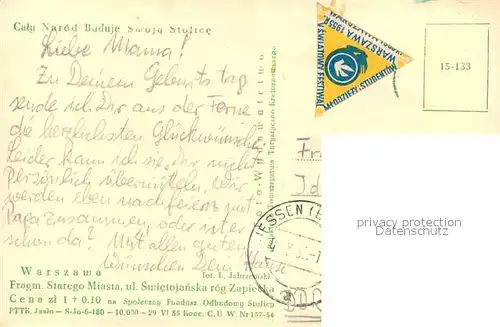 Cały Naród Buduje Swoją Stolicę
Liebe Mama!
Zu Deinem Geburtstag
sende ich Dir aus der Ferne
die herzlichsten Glückwünsche
Leider kann ich sie Dir nicht
persönlich übermitteln, wir
werden eben nachfeiern mit
Papa zusammen, oder ist er
schon da? Mit allen guten
Wünschen Dein
Warszawa
fot. L. Jabrzemski
Fragm. Starego Miasta, ul. Świętojańska róg Zapiecka
Cena zł 1 + 0.10 na Społeczny Fundusz Odbudowy Stolicy
PTTK. Jasło — S-Jo-6-180 — 10.000 — 29 VI 55 Konc. C. U. W. Nr 157-54
WARSZAWA 1955R.
ŚWIATOWY FESTIWAL
MŁODZIEŻY I STUDENTÓW
15-133
Fr
ESSEN
privacy protection
AnsichtskartenVersand.com